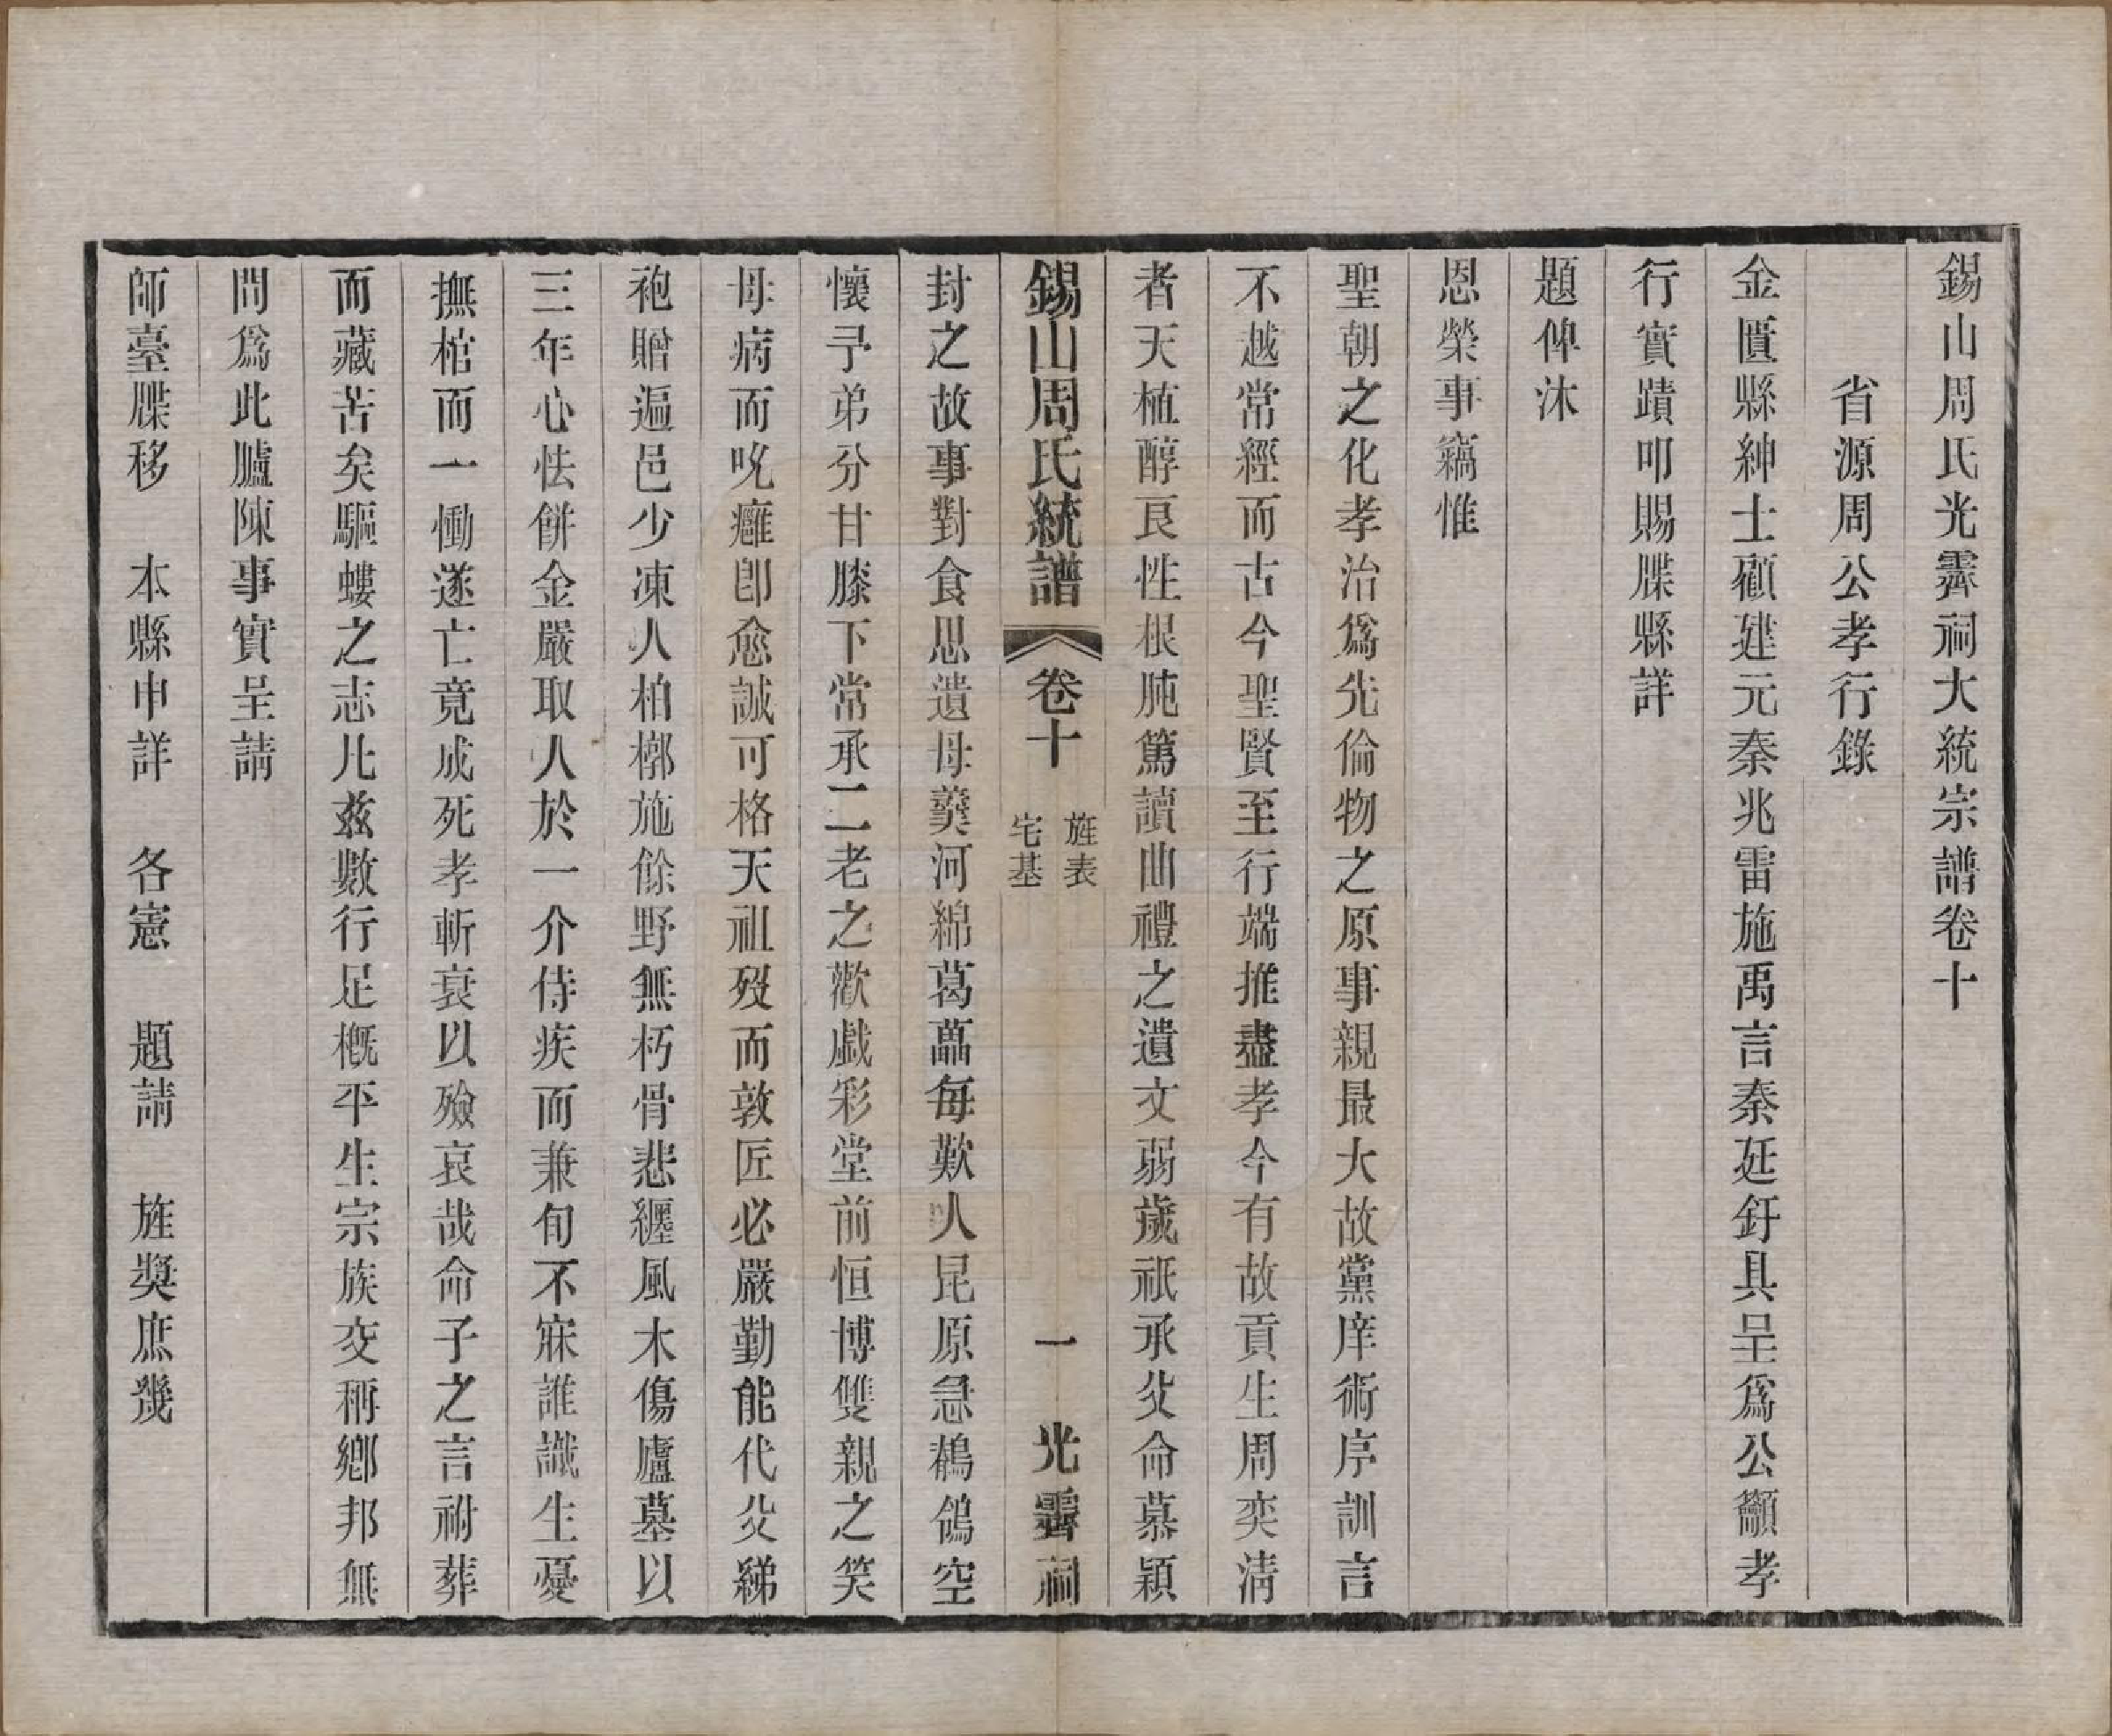 錫山周氏光霽祠大統宗譜卷十
省源周公孝行錄
金匱縣紳士顧建元秦兆雷施禹言秦廷釪具呈爲公籲孝
行實蹟叩賜牒縣詳
題俾沐
恩榮事竊惟
聖朝之化孝治爲先倫物之原事親最大故黨庠術序訓言
不越常經而古今聖賢至行端推盡孝今有故貢生周奕淸
者天植醇良性根肫篤讀曲禮之遺文弱歲祇承父命慕穎
錫山周氏統譜 卷十 旌表 宅基 一 光霽祠
封之故事對食思遺母羹河綿葛藟每歎人昆原急鶺鴒空
懷予弟分甘膝下常承二老之歡戲彩堂前恒博雙親之笑
母病而吮癰卽愈誠可格天祖歿而敦匠必嚴勤能代父綈
袍贈遍邑少凍人柏槨施餘野無朽骨悲纏風木傷廬墓以
三年心怯餅金嚴取人於一介侍疾而兼旬不寐誰識生憂
撫棺而一慟遂亡竟成死孝斬衰以殮哀哉命子之言祔葬
而藏苦矣驅螻之志凡兹數行足槪平生宗族交稱鄉邦無
間爲此臚陳事實呈請
師臺牒移 本縣申詳 各憲 題請 旌奬庶幾